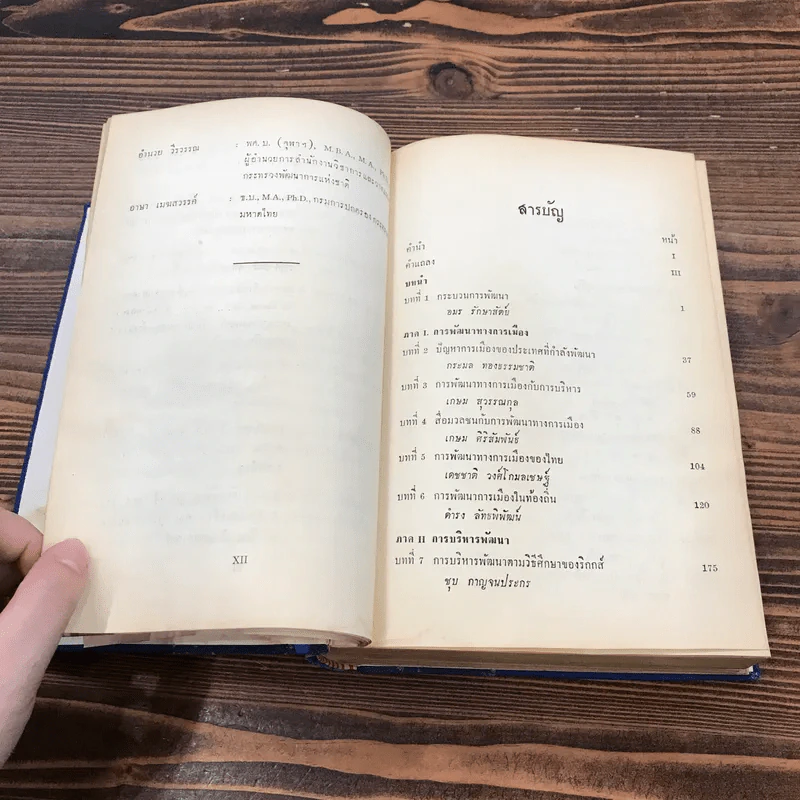 อำนวย วีรวรรณ : พศ. บ. (จุฬาฯ), M. B. A., M. A., Ph.
ผู้อำนวยการสำนักงานวิชาการและวางแผน
กระทรวงพัฒนาการแห่งชาติ
อาษา เมฆสวรรค์ : ร.บ., M.A., Ph.D., กรมการปกครอง กระทรวง
มหาดไทย
XII
สารบัญ
หน้า
คำนำ I
คำแถลง III
บทนำ
บทที่ 1 กระบวนการพัฒนา 1
อมร รักษาสัตย์
ภาค I. การพัฒนาทางการเมือง
บทที่ 2 ปัญหาการเมืองของประเทศที่กำลังพัฒนา 37
กระมล ทองธรรมชาติ
บทที่ 3 การพัฒนาทางการเมืองกับการบริหาร 59
เกษม สุวรรณกุล
บทที่ 4 สื่อมวลชนกับการพัฒนาทางการเมือง 88
เกษม ศิริสัมพันธ์
บทที่ 5 การพัฒนาทางการเมืองของไทย 104
เดชชาติ วงศ์โกมลเชษฐ์
บทที่ 6 การพัฒนาการเมืองในท้องถิ่น 120
ดำรง ลัทธพิพัฒน์
ภาค II การบริหารพัฒนา
บทที่ 7 การบริหารพัฒนาตามวิธีศึกษาของริกกส์ 175
ชุบ กาญจนประกร